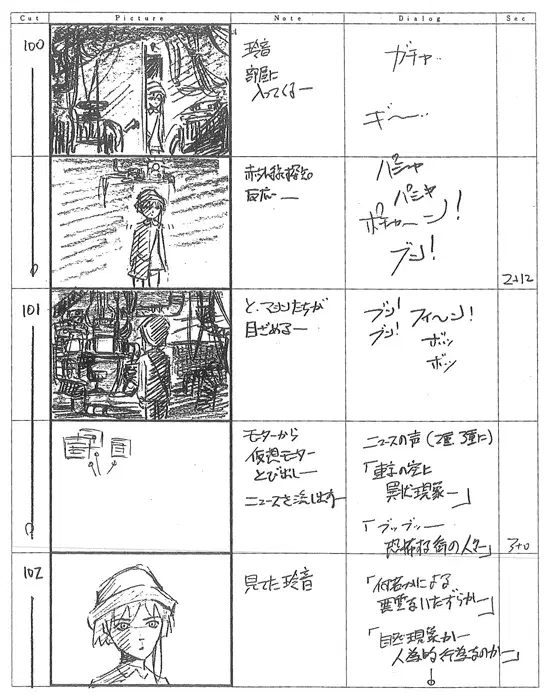 Cut Picture Note Dialog Sec
100
玲音
部屋に
入ってくるー
ガチャ‥
ギー‥
赤外線探知
反応ー
パシャ
パシャ
ポチャーン!
ブン!
2+12
101
と、マシンたちが
目ざめるー
ブン!
ブン!
フィーン!
ボッ
ボッ
モニターから
仮想モニター
とび出しー
ニュースを流し出すー
ニュースの声(2重、3重に)
「東京の空に
異状現象ー」
「ブッブッー
恐怖する街の人々」
3+0
102
見てた玲音
「何者かによる
悪霊ないたずらかー」
「自然現象かー
人為的行為なのかー」